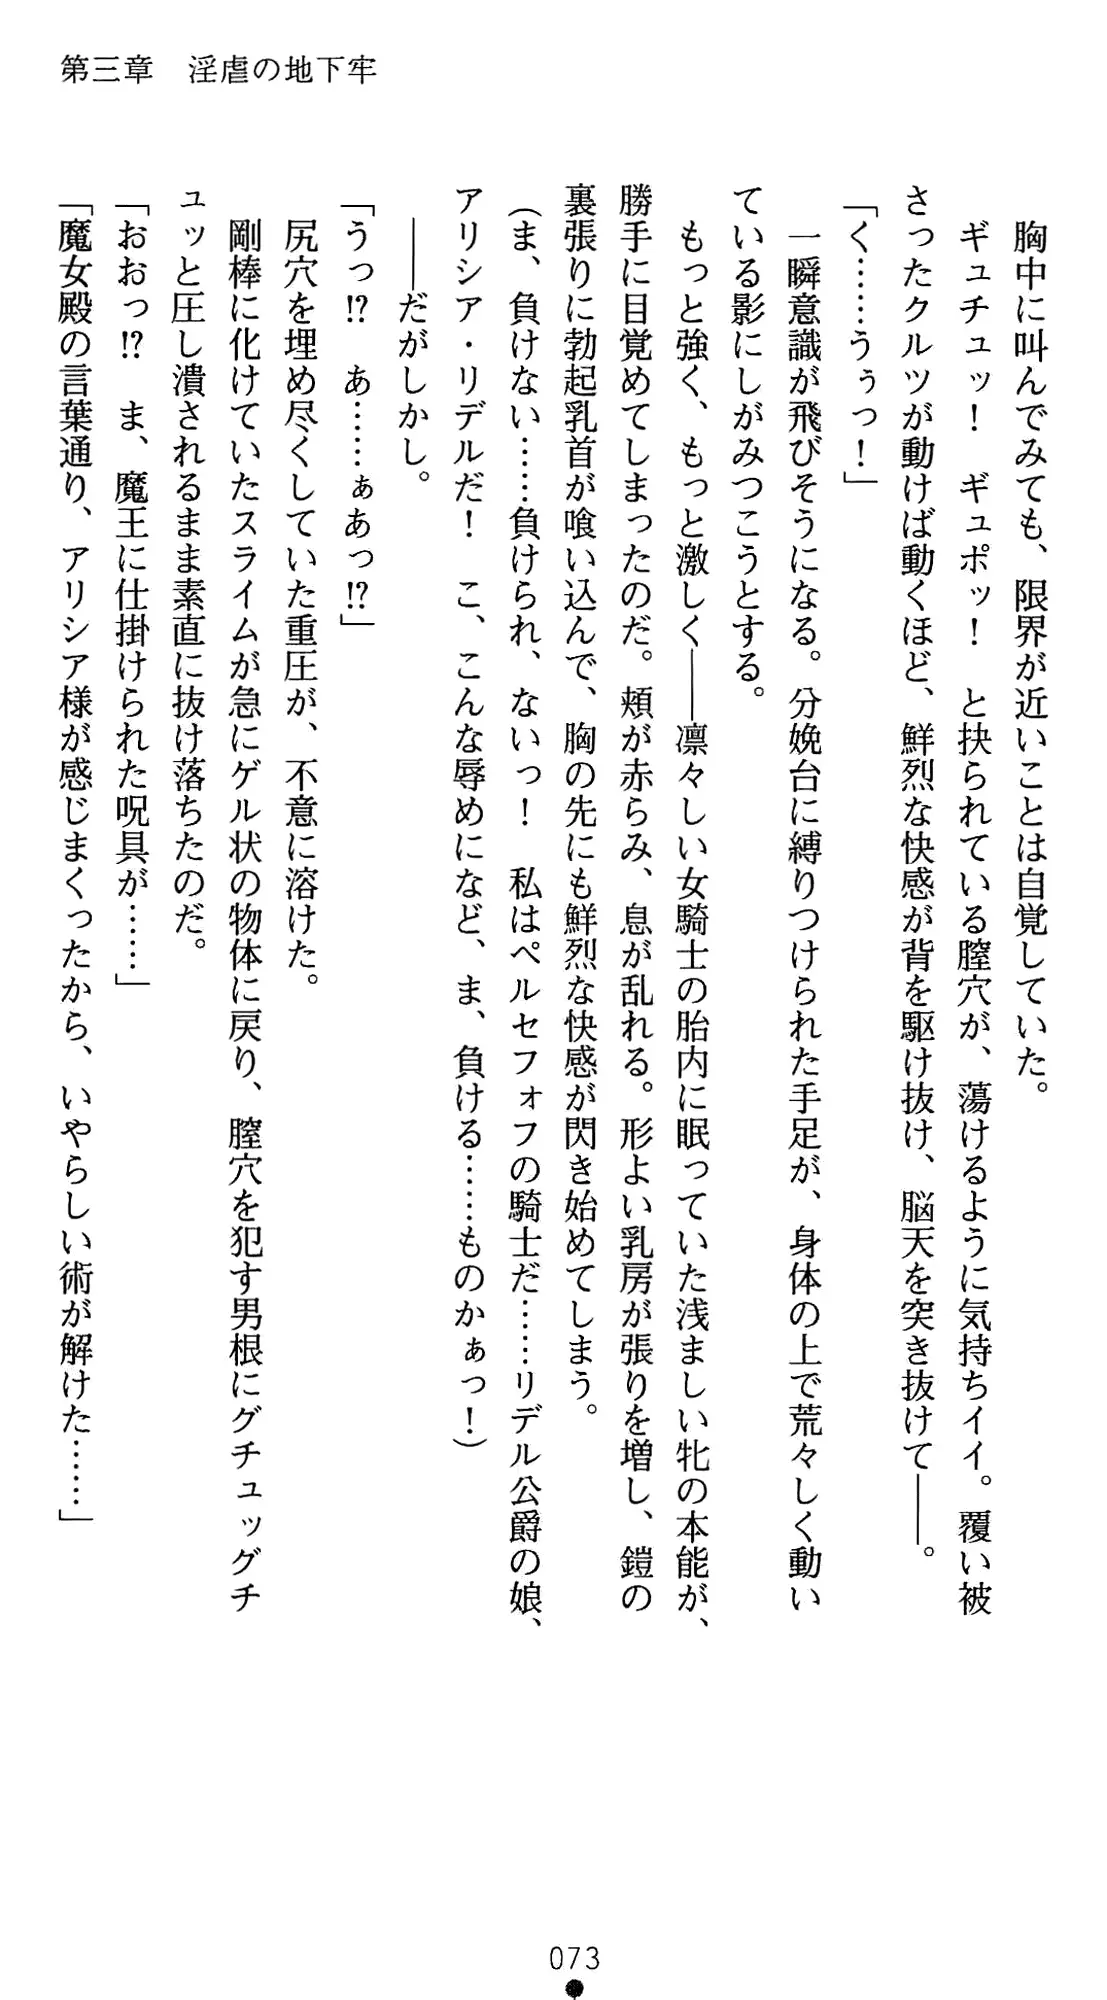 第三章　淫虐の地下牢
胸中に叫んでみても、限界が近いことは自覚していた。
ギュチュッ！　ギュポッ！　と抉られている膣穴が、蕩けるように気持ちイイ。覆い被
さったクルツが動けば動くほど、鮮烈な快感が背を駆け抜け、脳天を突き抜けて――。
「く……うぅっ！」
一瞬意識が飛びそうになる。分娩台に縛りつけられた手足が、身体の上で荒々しく動い
ている影にしがみつこうとする。
もっと強く、もっと激しく――凛々しい女騎士の胎内に眠っていた浅ましい牝の本能が、
勝手に目覚めてしまったのだ。頬が赤らみ、息が乱れる。形よい乳房が張りを増し、鎧の
裏張りに勃起乳首が喰い込んで、胸の先にも鮮烈な快感が閃き始めてしまう。
（ま、負けない……負けられ、ないっ！　私はペルセフォフの騎士だ……リデル公爵の娘、
アリシア・リデルだ！　こ、こんな辱めになど、ま、負ける……ものかぁっ！）
――だがしかし。
「うっ!?　あ……ぁあっ!?」
尻穴を埋め尽くしていた重圧が、不意に溶けた。
剛棒に化けていたスライムが急にゲル状の物体に戻り、膣穴を犯す男根にグチュッグチ
ュッと圧し潰されるまま素直に抜け落ちたのだ。
「おおっ!?　ま、魔王に仕掛けられた呪具が……」
「魔女殿の言葉通り、アリシア様が感じまくったから、いやらしい術が解けた……」
073